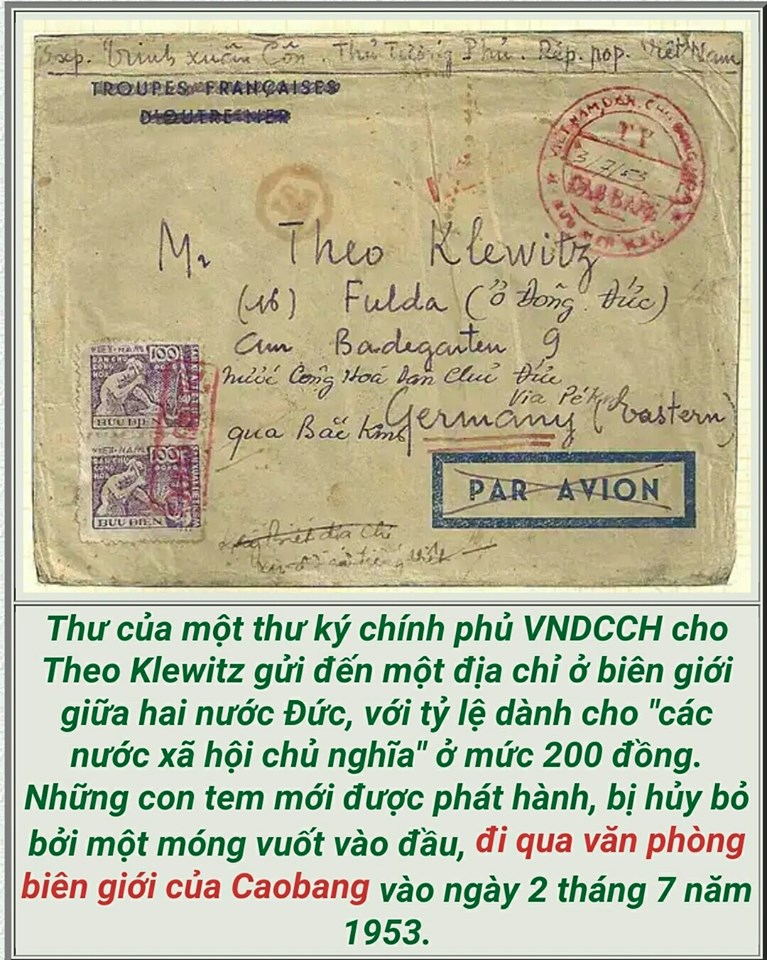 Exp. Trinh xuân Côn. Thủ Tướng Phủ. Rép. pop. Việt Nam
TROUPES FRANÇAISES
D'OUTRE-MER
TP
3/7/53
CAO BANG
Mr Theo Klewitz
(16) Fulda (ở Đông Đức)
am Badegarten 9
nước Cộng Hoà Dân Chủ Đức
Via Pékin
qua Bắc Kinh Germany (Eastern)
VIỆT-NAM 100
DÂN CHỦ
CỘNG
HÒA
BƯU ĐIỆN
VIỆT-NAM 100
DÂN CHỦ
CỘNG
HÒA
BƯU ĐIỆN
PAR AVION
Thư của một thư ký chính phủ VNDCCH cho
Theo Klewitz gửi đến một địa chỉ ở biên giới
giữa hai nước Đức, với tỷ lệ dành cho "các
nước xã hội chủ nghĩa" ở mức 200 đồng.
Những con tem mới được phát hành, bị hủy bỏ
bởi một móng vuốt vào đầu, đi qua văn phòng
biên giới của Caobang vào ngày 2 tháng 7 năm
1953.